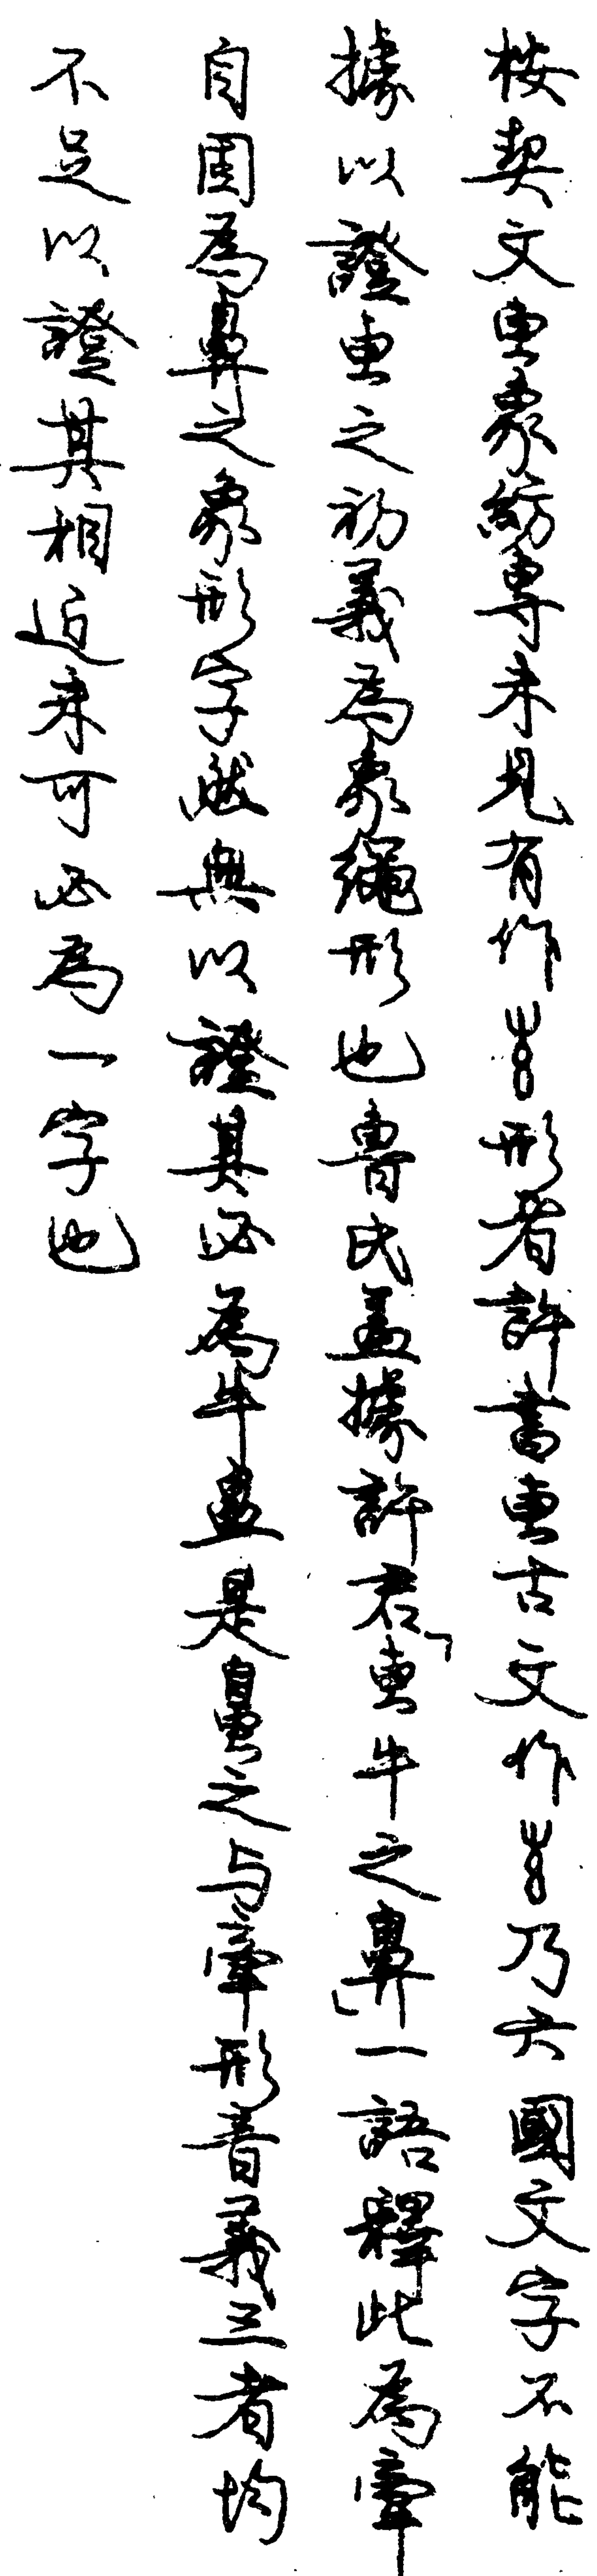 桉契文叀象紡專未見有作𠧢形者許書叀古文作𠧢乃六國文字不能
據以證叀之初義為象繩形也魯氏蓋據許君「叀牛之鼻」一語釋此為牽
自固為鼻之象形字然無以證其必為牛盖是之与牽形音義三者均
不足以證其相近未可必為一字也